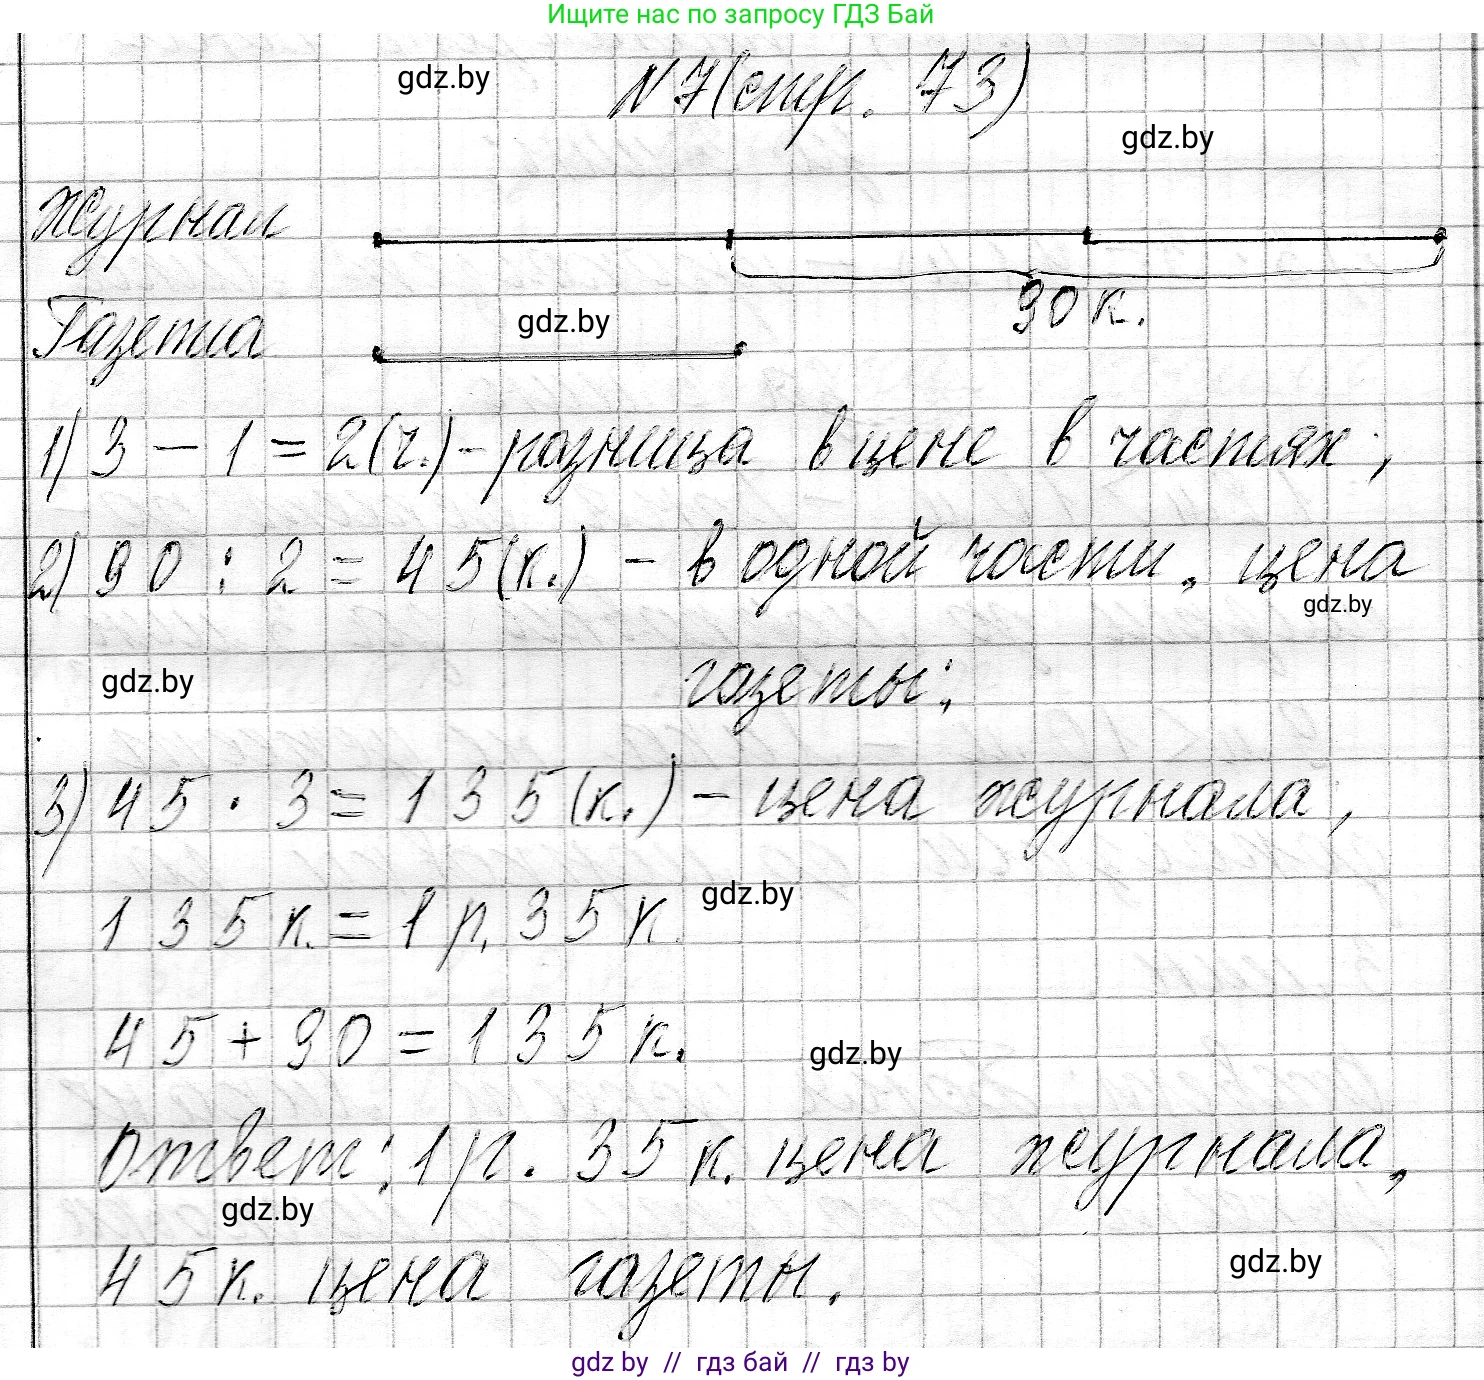 Ищите нас по запросу ГДЗ Бай
gdz.by
N 7 (стр. 73)
gdz.by
Журнал
90 к.
Газета
gdz.by
1) 3 - 1 = 2 (ч.) - разница в цене в частях;
2) 90 : 2 = 45 (к.) - в одной части, цена
gdz.by
gdz.by
газеты;
3) 45 · 3 = 135 (к.) - цена журнала,
135 к. = 1 р. 35 к.
gdz.by
45 + 90 = 135 к.
gdz.by
Ответ: 1 р. 35 к. цена журнала,
gdz.by
45 к. цена газеты.
gdz.by
gdz by // гдз бай // гдз by